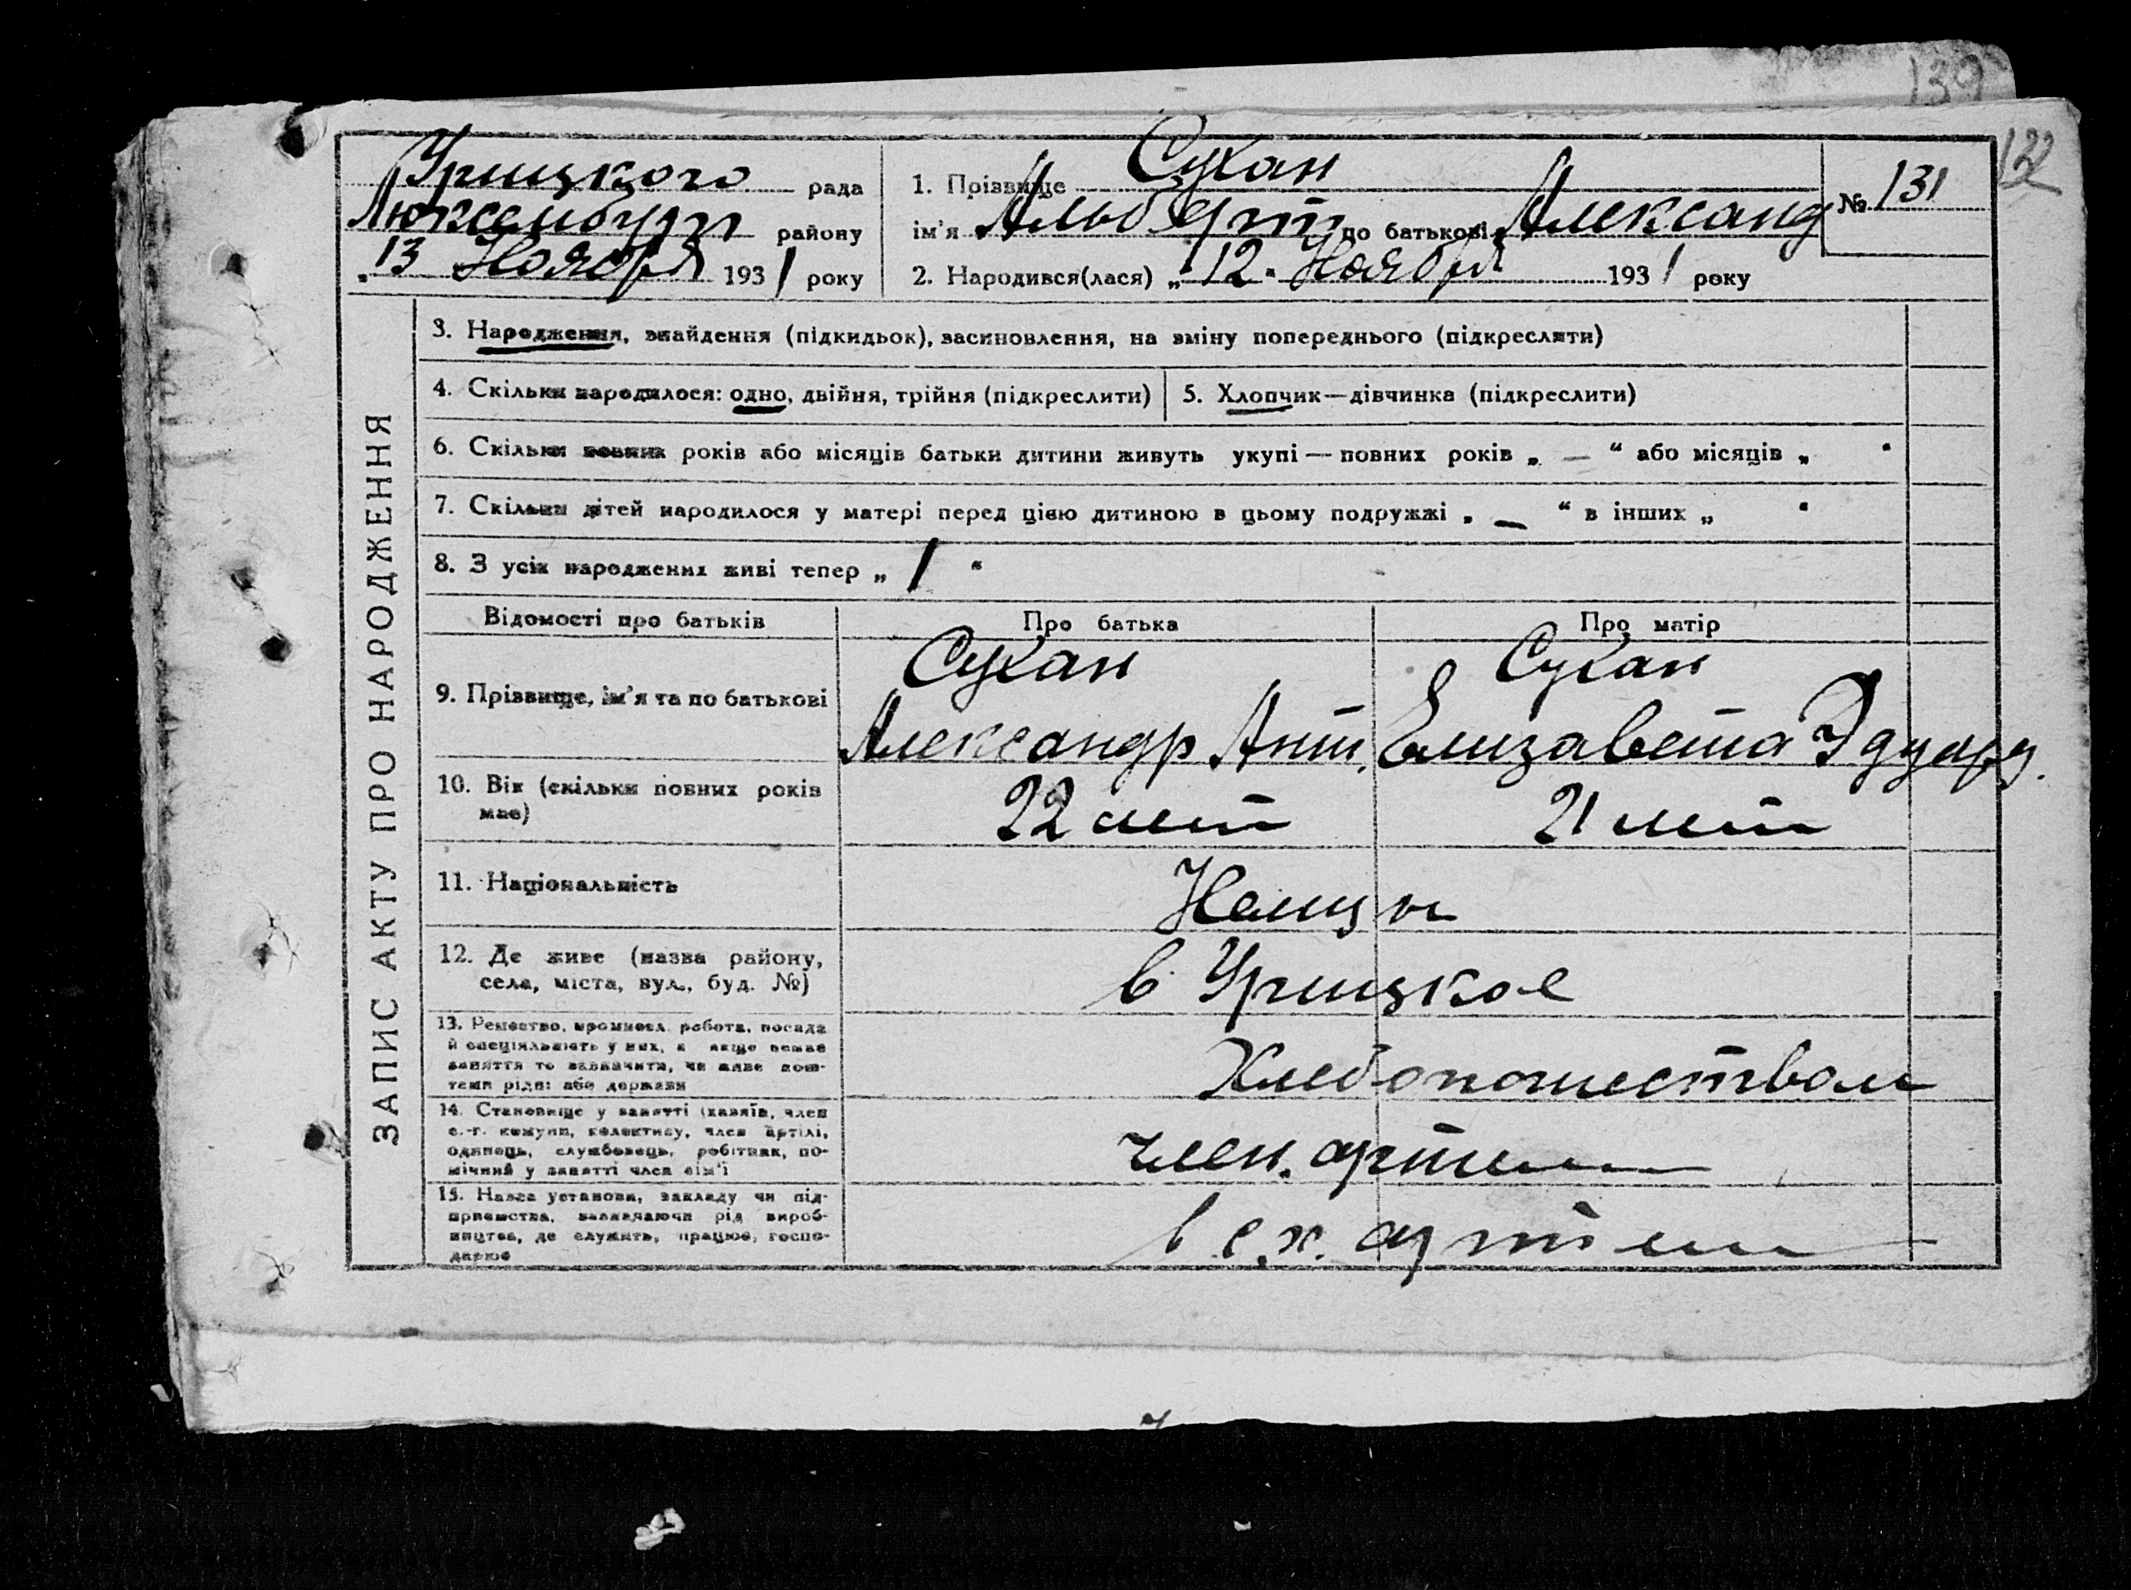 139
122
Урицкого рада
Люксембург району
„ 13 Ноября 1931 року
1. Прізвище Сухан
ім'я Альберт по батькові Александ
№ 131
2. Народився(лася) „ 12 " Ноября 1931 року
ЗАПИС АКТУ ПРО НАРОДЖЕННЯ
3. Народження, знайдення (підкидьок), засиновлення, на зміну попереднього (підкреслити)
4. Скільки народилося: одно, двійня, трійня (підкреслити)
5. Хлопчик—дівчинка (підкреслити)
6. Скільки повних років або місяців батьки дитини живуть укупі — повних років „ — “ або місяців „ “
7. Скільки дітей народилося у матері перед цією дитиною в цьому подружжі „ — “ в інших „ “
8. З усіх народжених живі тепер „ 1 “
Відомості про батьків Про батька Про матір
9. Прізвище, ім'я та по батькові
Сухан
Александр Ант.
Сухан
Елизавета Эдуард.
10. Вік (скільки повних років
має)
22 лет
21 лет
11. Національність
Немцы
12. Де живе (назва району,
села, міста, вул., буд. №)
в Урицкое
13. Ремество, промисел, робота, посада
й спеціяльність у них, а якщо немає
заняття то зазначити, чи живе кош-
тами рідні або держави
Хлебопашеством
14. Становище у занятті (хазяїн, член
с.-г. комуни, колективу, член артілі,
одинець, службовець, робітник, по-
мічний у занятті член сім'ї
член. артели
15. Назва установи, закладу чи під-
приємства, зазначаючи рід вироб-
ництва, де служить, працює, госпо-
дарює
в с.х. артели